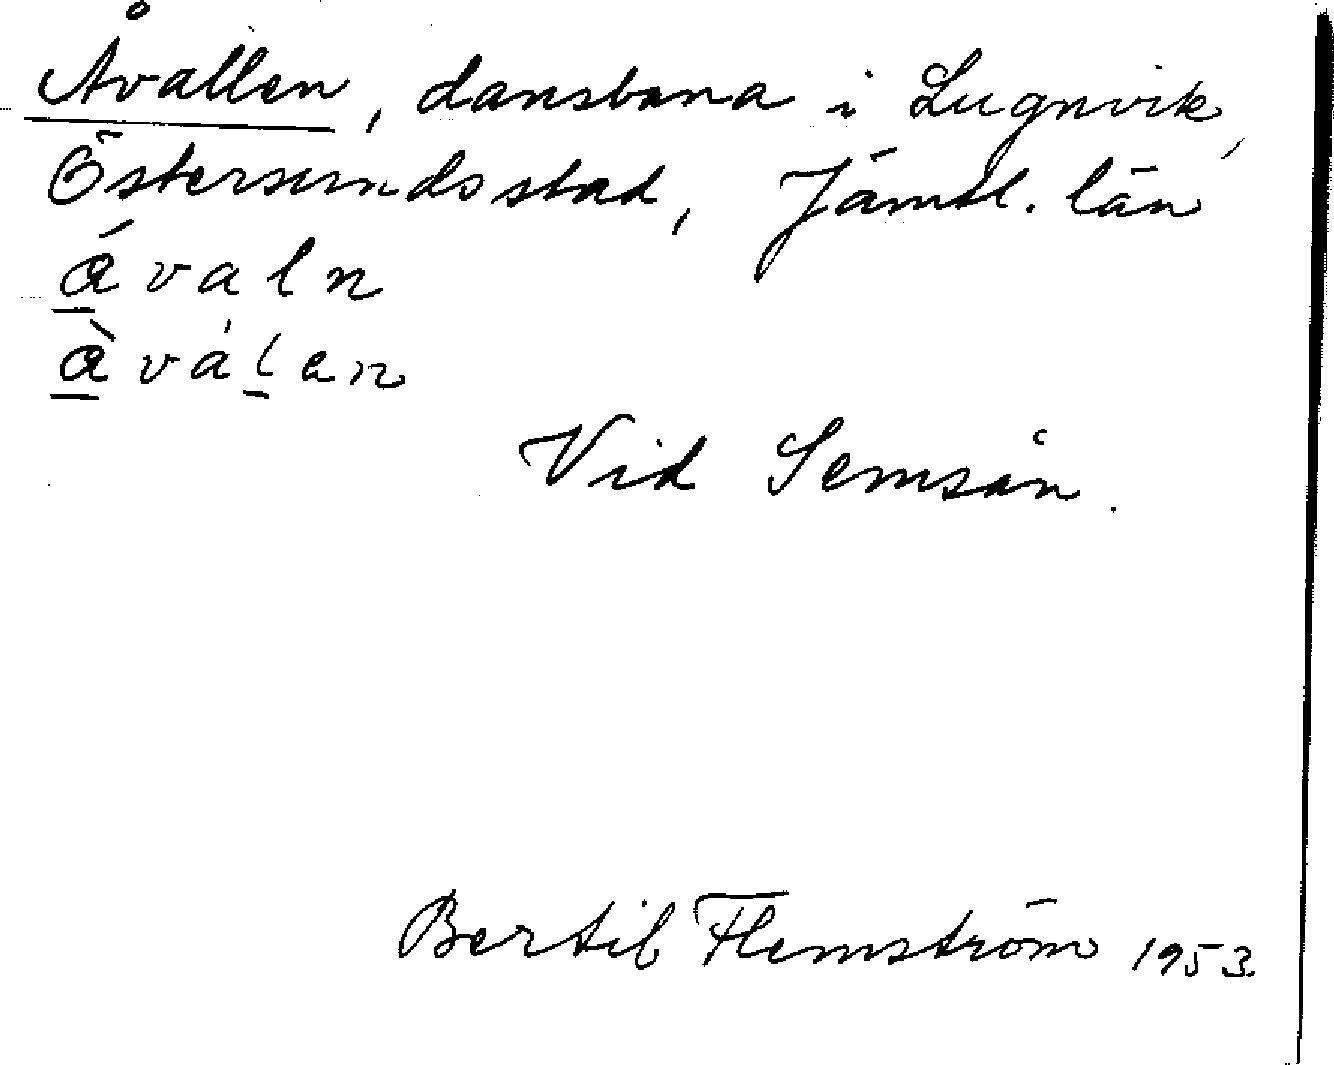 Åvallen, dansbana i Lugnvik,
Östersunds stad, Jämtl. län
á̱valn
à̱váḻen
Vid Semsån.
Bertil Flemström 1953.